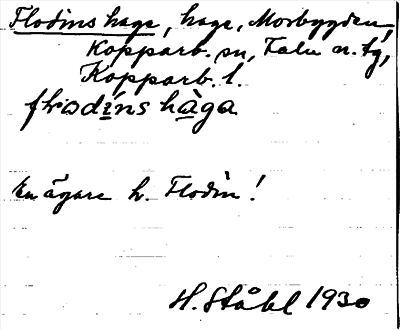 Flodins hage, hage, Morbygden,
Kopparb. sn, Falu n. tg,
Kopparb. l.
flωdíns hàga
En ägare h. Flodin!
H. Ståhl 1930